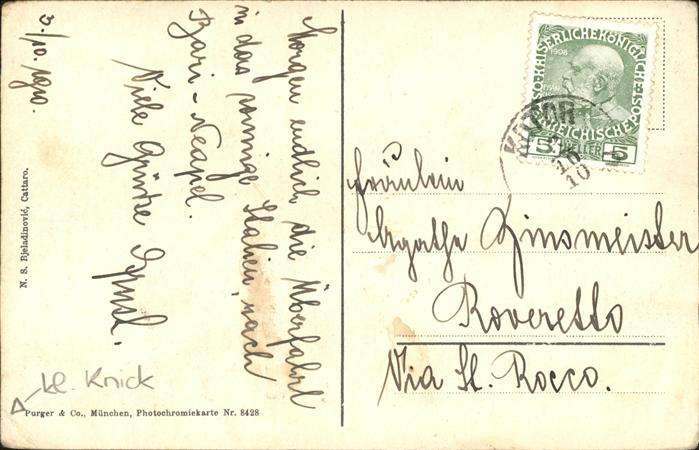 3./10. 1910.
Morgen endlich die Überfahrt
in das sonnige Italien, nach
Bari - Neapel.
Viele Grüße Ernst.
N. S. Bjeladinović, Cattaro.
kl. Knick
Purger & Co., München, Photochromiekarte Nr. 8428
KAISERLICHE KÖNIGLICHE
1908
ÖSTERREICHISCHE POST
5 HELLER 5
10
10
Fräulein
Agathe Zinsmeister
Roveretto
Via St. Rocco.